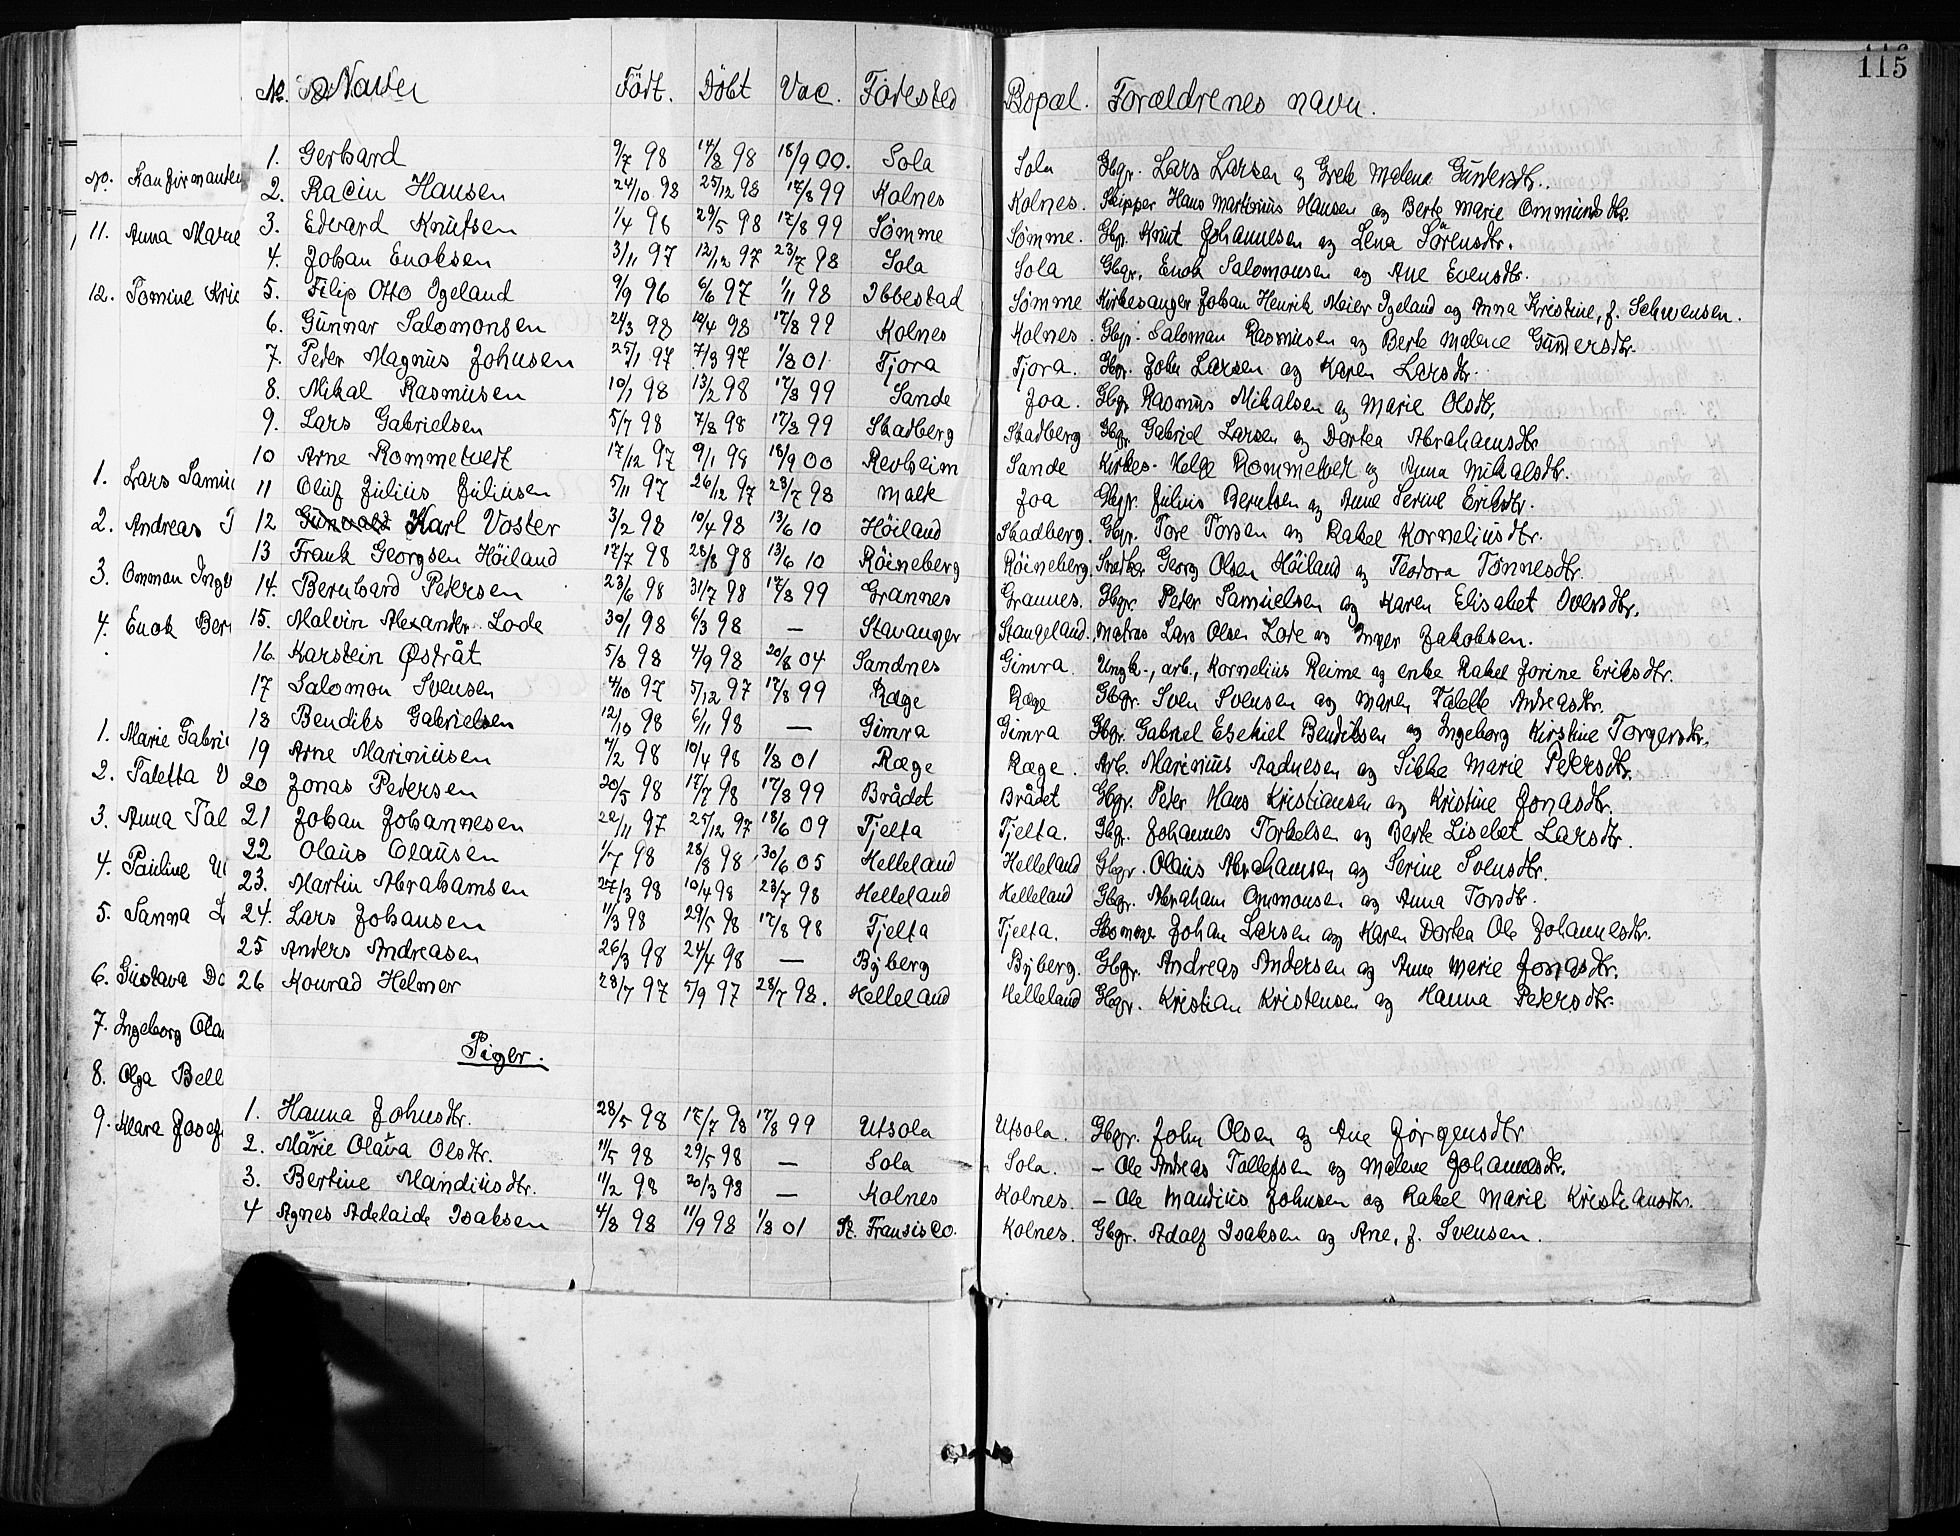 115
No. Navn Födt. Döbt Vac. Födested Bopæl. Forældrenes navn.
1. Gerhard 9/7 98 14/8 98 18/9 00. Sola Sola Gbgr. Lars Larsen og Grete Malena
2. Racin Hansen 24/10 98 25/12 98 17/8 99 Kolnes Kolnes. Skipper Hans Martinius Hansen og Berte Marie Ommundsdtr.
3. Edvard Knutsen 1/4 98 29/5 98 17/8 99 Sømme Sømme. Gbgr. Knut Johannesen og Lena Sörensdtr.
4. Johan Enoksen 3/11 97 12/12 97 23/7 98 Sola Sola Gbgr. Enok Salomonsen og Ane Evensdtr.
5. Filip Otto Igeland 9/9 96 6/6 97 1/11 98 Ibbestad Sømme Kirkesanger Johan Henrik Meier Igeland og Anna Kristine, f. Schwensen.
6. Gunnar Salomonsen 24/3 98 10/4 98 17/8 99 Kolnes Kolnes. Gbgr. Saloman Rasmusen og Berte Malene Gunnersdtr.
7. Peder Magnus Johnsen 25/1 97 7/3 97 1/8 01 Tjora Tjora. Gbgr. John Larsen og Karen Larsdtr.
8. Mikal Rasmusen 10/1 98 13/2 98 17/8 99 Sande Joa. Gbgr Rasmus Mikalsen og Marie Olsdtr,
9. Lars Gabrielsen 5/7 98 7/8 98 17/8 99 Stadberg Stadberg Gbgr. Gabriel Larsen og Dortea Abrahamsdtr
10 Arne Rommetvedt 17/12 97 9/1 98 18/9 00 Revheim Sande Kirkes. Helge Rommetvet og Anna Mikalsdtr.
11 Oluf Julius Juliusen 5/11 97 26/12 97 23/7 98 Malk Joa Gbgr. Julius Berntsen og Anne Serine Eriksdtr.
12 Gunvald Karl Voster 3/2 98 10/4 98 13/6 10 Höiland Stadberg. Gbgr. Tore Torsen og Rakel Korneliusdtr.
13 Frank Georgsen Höiland 17/7 98 28/8 98 13/6 10 Röineberg Röineberg. Snedker Georg Olsen Höiland og Teodora Tönnesdtr.
14. Bernhard Petersen 23/6 98 31/7 98 17/8 99 Grannes Grannes. Gbgr. Peter Samuelsen og Karen Elisabet Ovensdtr.
15. Malvin Alexander Lode 30/1 98 6/3 98 — Stavanger Stangeland. Matros Lars Olsen Lode og Inger Jakobsen.
16. Karstein Østråt 5/8 98 4/9 98 20/8 04 Sandnes Gimra. Ungk., arb., Kornelius Reime og enke Rakel Jorine Eriksdtr.
17 Salomon Svensen 4/10 97 5/12 97 17/8 99 Ræge Ræge Gbgr. Sven Svensen og Maren Talette Andreasdtr.
18 Bendiks Gabrielsen 12/10 98 6/11 98 — Gimra Gimra Gbgr. Gabriel Esekiel Bendiksen og Ingeborg Kirstine Torgersdtr.
19 Arne Mariniusen 7/2 98 10/4 98 1/8 01 Ræge Ræge. Arb. Marinius Aadnesen og Sikke Marie Petersdtr.
20 Jonas Petersen 20/5 98 17/7 98 17/8 99 Brådet Brådet Gbgr. Peter Hans Kristiansen og Kristine Jonasdtr.
21 Johan Johannesen 22/11 97 25/12 97 18/6 09 Tjelta Tjelta. Gbgr. Johannes Torkelsen og Berte Lisebet Larsdtr.
22 Olaus Olausen 1/7 98 28/8 98 30/6 05 Helleland Helleland Gbgr. Olaus Abrahamsen og Serine Svensdtr.
23. Martin Abrahamsen 27/3 98 10/4 98 23/7 98 Helleland Helleland Gbgr. Abraham Ommonsen og Anna Torsdtr.
24. Lars Johansen 11/3 98 29/5 98 17/8 98 Tjelta Tjelta. Johan Larsen og Karen Dortea Ole Johannesdtr.
25 Anders Andreasen 26/3 98 24/4 98 — Byberg Byberg. Gbgr. Andreas Andersen og Anne Marie Jonasdtr.
26 Konrad Helmer 28/7 97 5/9 97 23/7 98. Helleland Helleland Gbgr. Kristian Kristensen og Hanna Petersdtr.
Piger.
1. Hanna Johnsdtr. 28/5 98 17/7 98 17/8 99 Utsola Utsola. Gbgr. John Olsen og Ane Jörgensdtr
2. Marie Olava Olsdtr. 11/5 98 29/5 98 — Sola Sola. — Ole Andreas Tollefsen og Malene Johannesdtr.
3. Bertine Mandiusdtr. 11/2 98 20/3 98 — Kolnes Kolnes. — Ole Mandius Johnsen og Rakel Marie Kristiansdtr.
4 Agnes Adelaide Isaksen 4/8 98 11/9 98 1/8 01 St. Fransisco. Kolnes. Gbgr. Adolf Isaksen og Ane, f. Svensen.
No. Konfirmanten
11. Anna Marie
12. Tomine
1. Lars
2. Andreas
3. Omman
4. Enok
1. Marie
2. Taletta
3. Anna
4. Pauline
5. Sanna
6. Gustava
7. Ingeborg
8. Olga
9. Klara